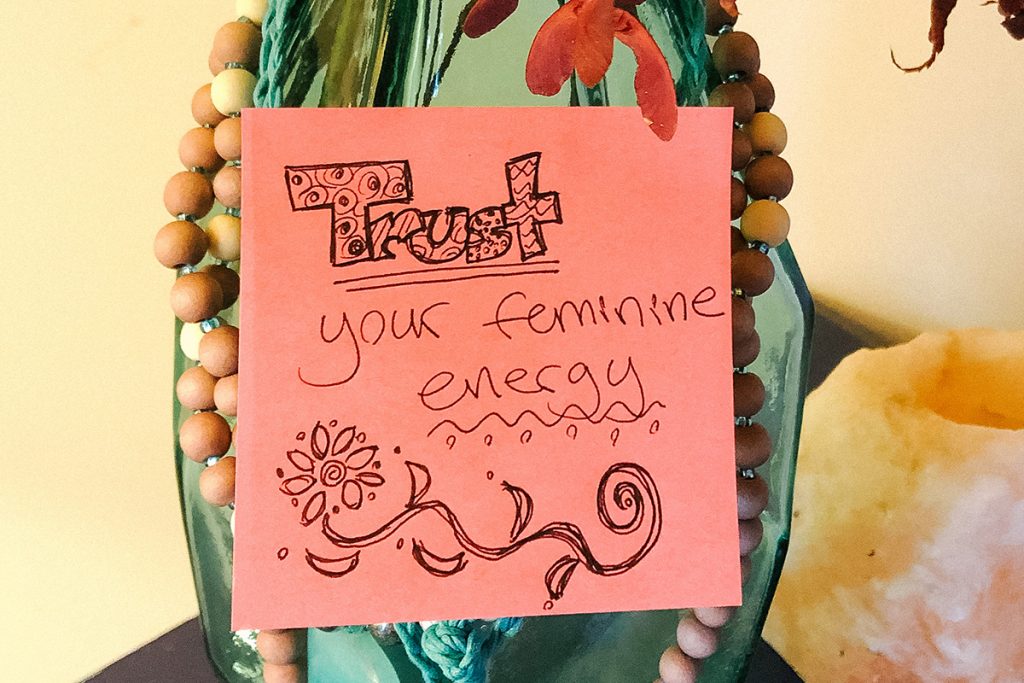 Trust
your feminine
energy